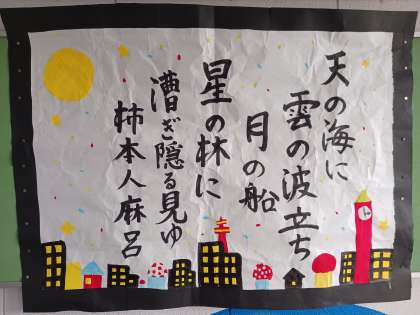 天の海に
雲の波立ち
月の船
星の林に
漕ぎ隠る見ゆ
柿本人麻呂